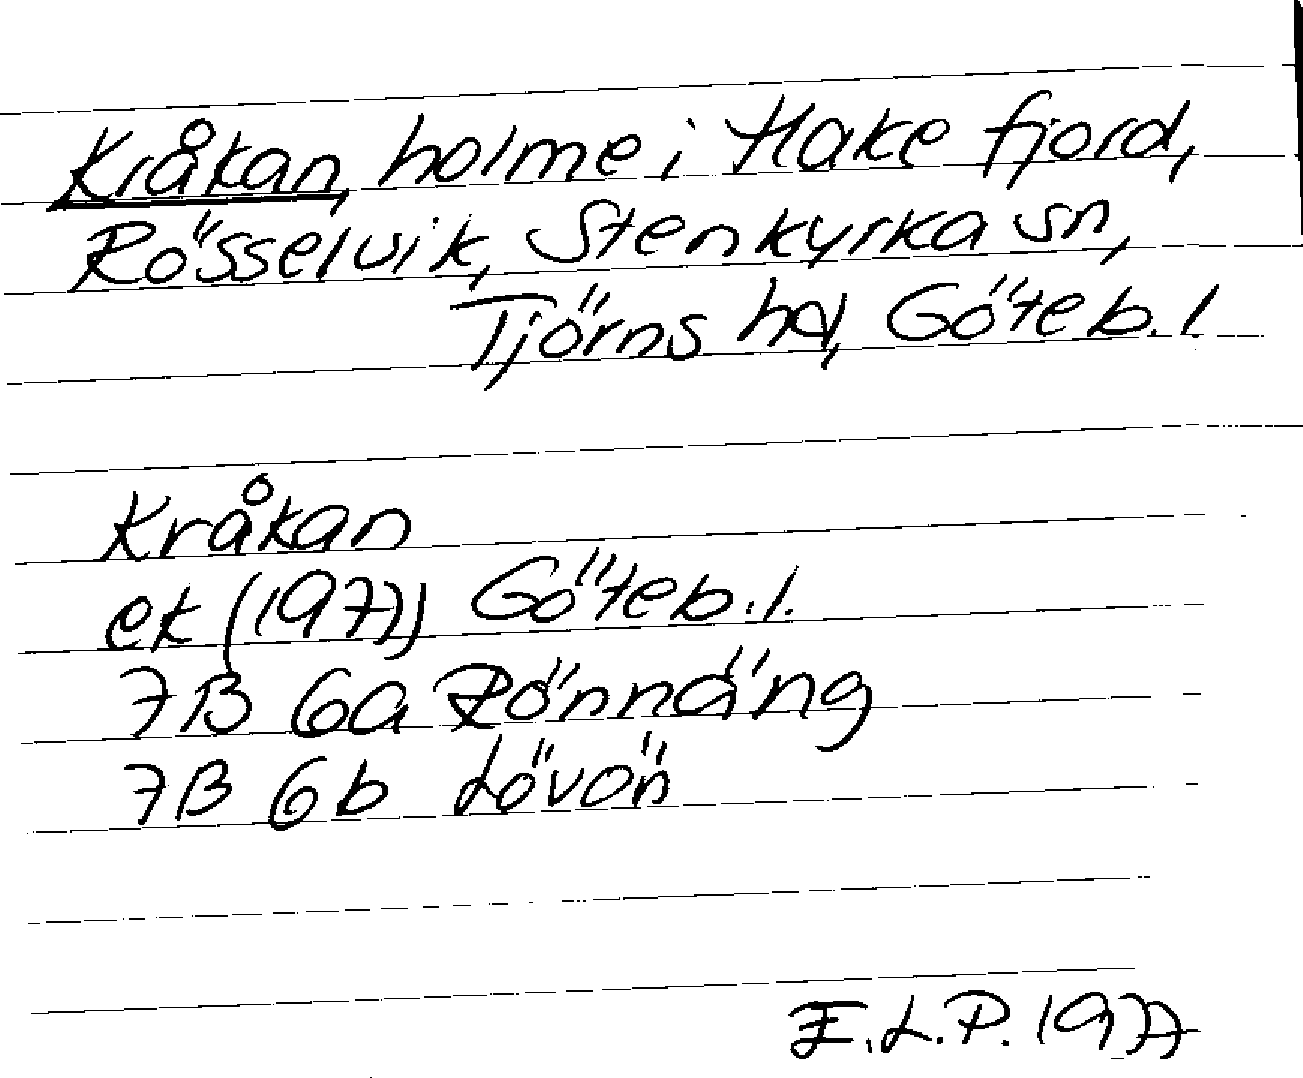 Kråkan, holme i Hake fjord,
Rösselvik, Stenkyrka sn,
Tjörns hd, Göteb. l.
Kråkan
ek (1977) Göteb. l.
7B 6a Rönnäng
7B 6b Lövön
E.L.P. 1977